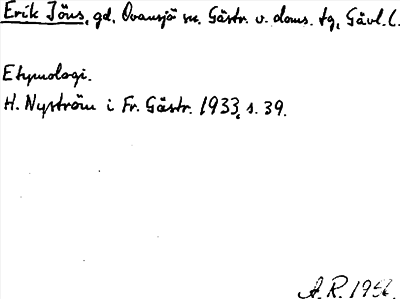 Erik Jöns, gd, Ovansjö sn. Gästr. v. doms. tg, Gävl. l.
Etymologi.
H. Nyström i Fr. Gästr. 1933, s. 39.
A. R. 1956.